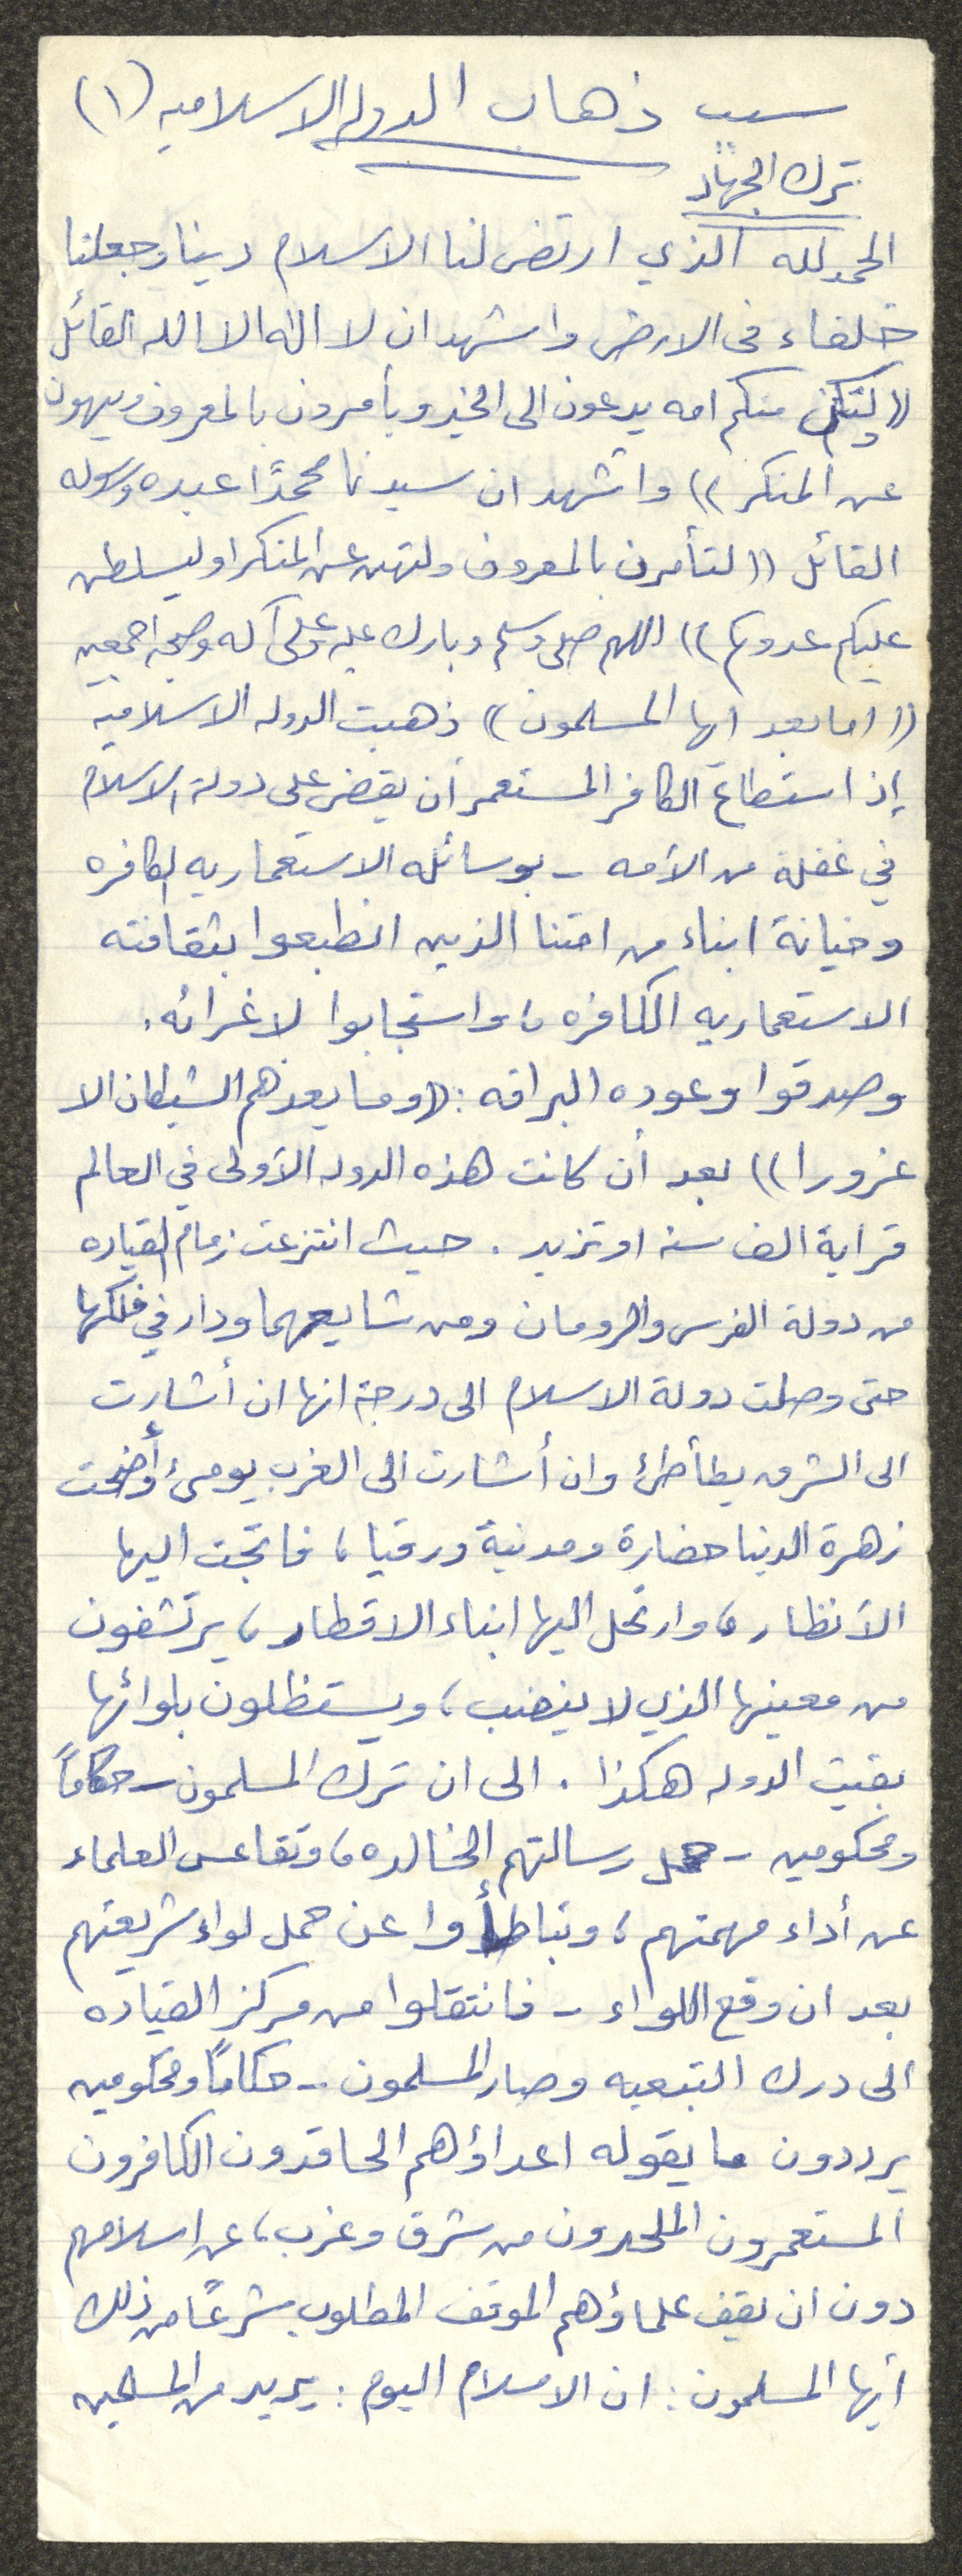 سبب ذهاب الدولة الاسلاميه (١)
ترك الجهاد
الحمد لله الذي ارتضى لنا الاسلام دينا وجعلنا
خلفاء في الارض واشهد ان لا اله الا الله القائل
((ولتكن منكم امه يدعون الى الخير ويأمرون بالمعروف وينهون
عن المنكر)) واشهد ان سيدنا محمدًا عبده ورسوله
القائل ((لتأمرن بالمعروف ولتنهن عن المنكر او ليسلطن
عليكم عدوكم)) اللهم صلى وسلم وبارك عليه وعلى آله وصحبه اجمعين
((اما بعد ايها المسلمون)) ذهبت الدوله الاسلاميه
إذ استطاع الكافر المستعمر أن يقضي على دولة الاسلام
في غفلة من الأمه - بوسائله الاستعماريه الكافره
وخيانة ابناء من امتنا الذين انطبعوا بثقافته
الاستعماريه الكافره، واستجابوا لاغرائه.
وصدقوا وعوده البراقه: ((وما يعدهم الشيطان الا
غرورا)) بعد أن كانت هذه الدوله الأولى في العالم
قرابة الف سنه او تزيد. حيث انتزعت زمام القياده
من دولة الفرس والرومان ومن شايعهما ودار في فلكها
حتى وصلت دولة الاسلام الى درجة انها ان أشارت
الى الشرق يطأطئ وان أشارت الى الغرب يومئ وأضحت
زهرة الدنيا حضارة ومدنية ورقيا، فاتجهت اليها
الأنظار، وارتحل اليها ابناء الاقطار، يرتشفون
من معينها الذي لا ينضب، ويستظلون بلوائها
بقيت الدوله هكذا. الى ان ترك المسلمون - حكاماً
ومحكومين - حمل رسالتهم الخالده، وتقاعس العلماء
عن أداء مهمتهم، وتباطأوا عن حمل لواء شريعتهم
بعد ان وقع اللواء - فانتقلوا من مركز القياده
الى درك التبعيه وصار المسلمون - حكاماً ومحكومين
يرددون ما يقوله اعداؤهم الحاقدون الكافرون
المستعمرون الملحدون من شرق وغرب، عن اسلامهم
دون ان يقف علماؤهم الموقف المطلوب شرعًا من ذلك
ايها المسلمون: ان الاسلام اليوم: يريد من المسلمين